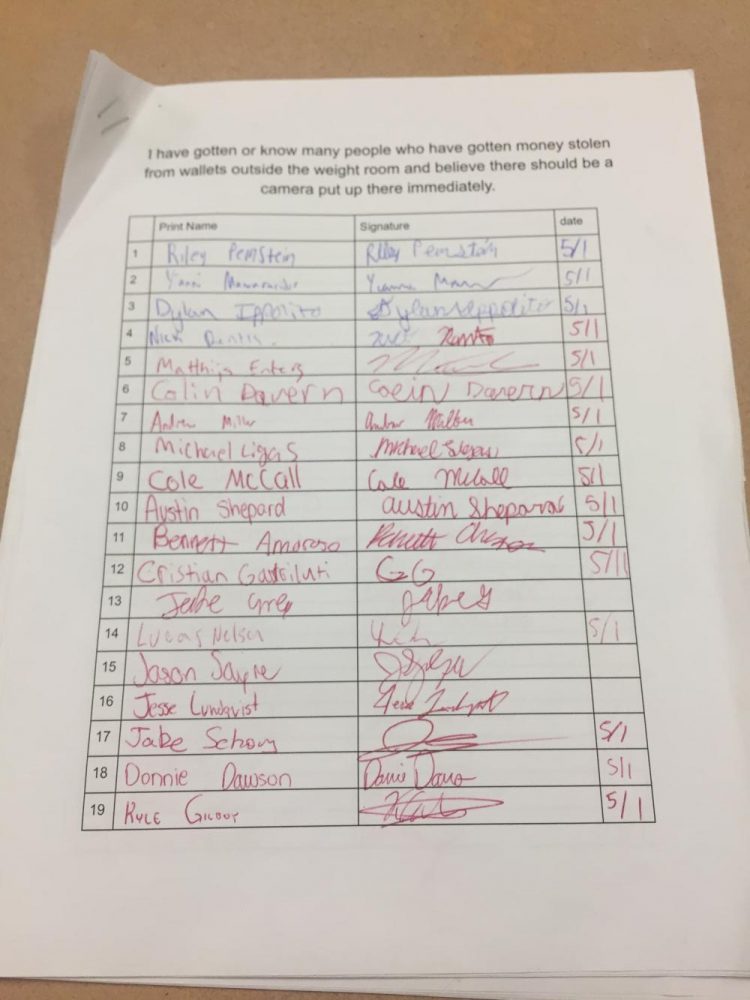 I have gotten or know many people who have gotten money stolen
from wallets outside the weight room and believe there should be a
camera put up there immediately.
Print Name Signature date
1 Riley Pemstein Riley Pemstein 5/1
2 5/1
3 Dylan Ippolito Dylan Ippolito 5/1
4 Nick 5/1
5 Matthijs Enters 5/1
6 Colin Davern Colin Davern 5/1
7 Andrew Miller 5/1
8 Michael Ligas Michael 5/1
9 Cole McCall Cole McCall 5/1
10 Austin Shepard Austin Shepard 5/1
11 Bennett Amoroso Bennett 5/1
12 Cristian GG 5/1
13 Jake Grey
14 Lucas Nelson 5/1
15 Jason Sayre
16 Jesse Lundquist Jesse Lundquist
17 Jake 5/1
18 Donnie Dawson 5/1
19 Kyle 5/1